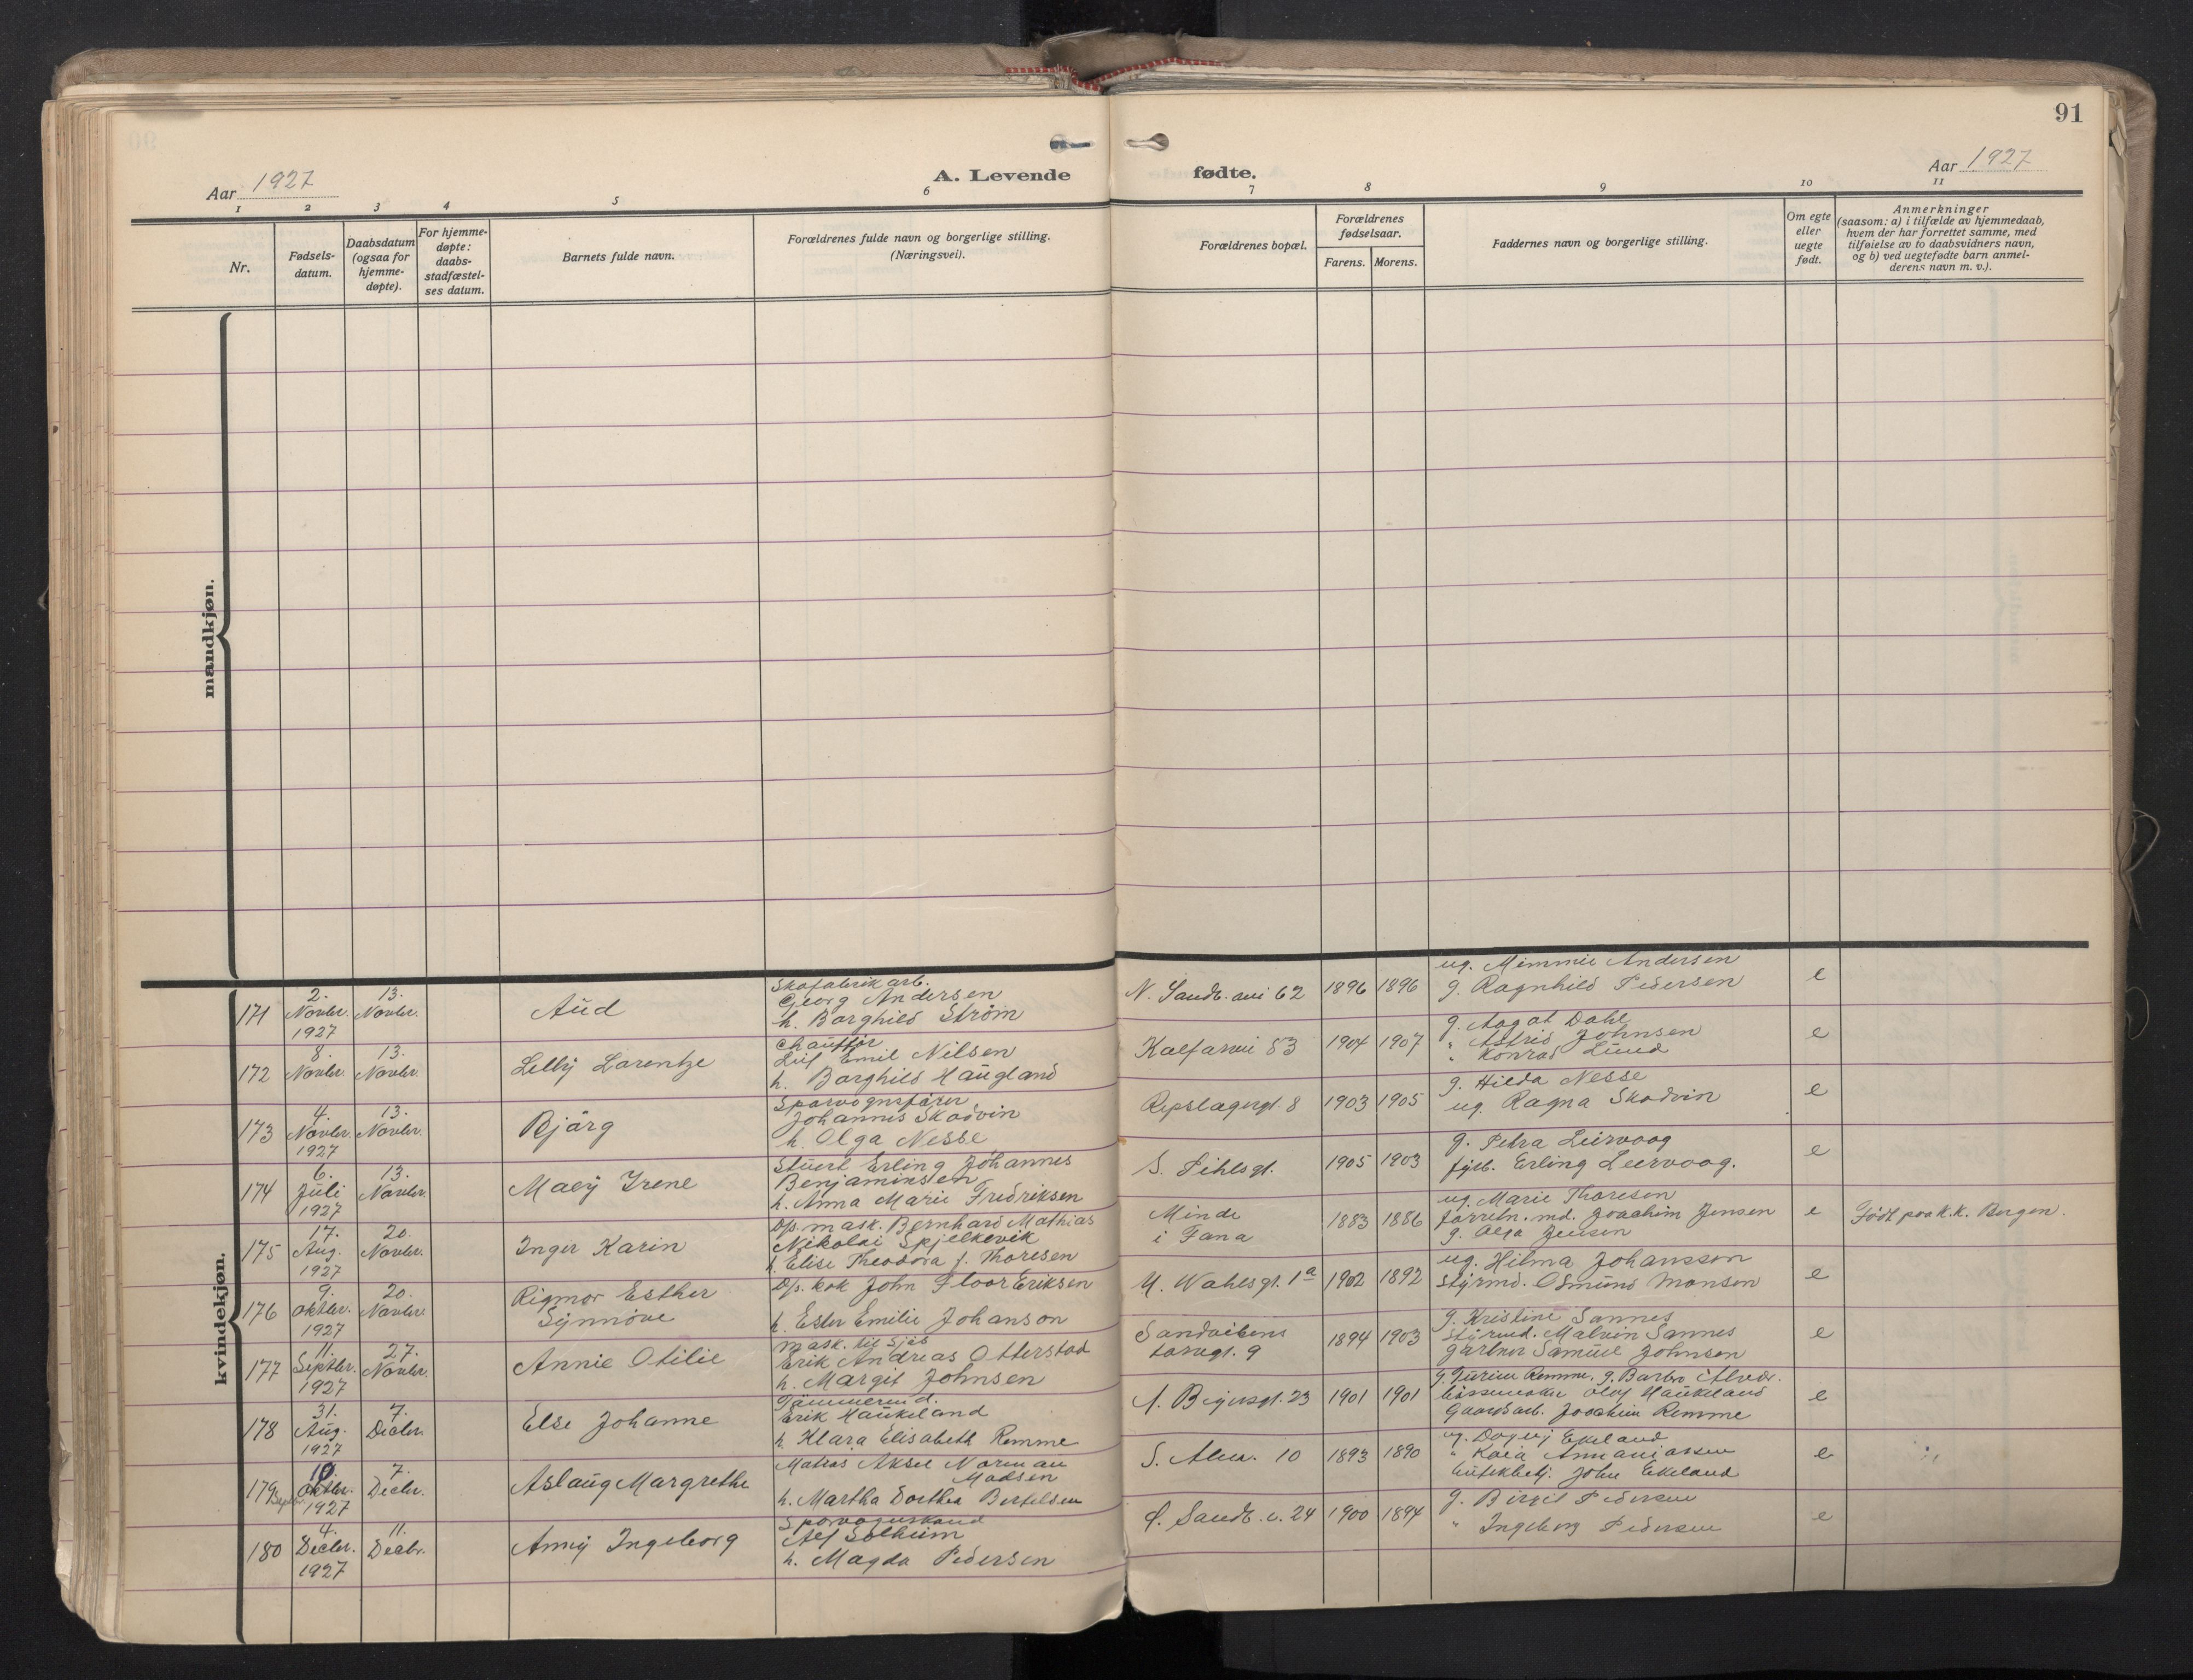 91
Aar 1927
A. Levende fødte.
Aar 1927
1 2 3 4 5 6 7 8 9 10 11
Nr.
Fødsels-
datum.
Daabsdatum
(ogsaa for
hjemme-
døpte).
For hjemme-
døpte:
daabs-
stadfæstel-
ses datum.
Barnets fulde navn.
Forældrenes fulde navn og borgerlige stilling.
(Næringsvei).
Forældrenes bopæl.
Forældrenes
fødselsaar.
Farens. Morens.
Faddernes navn og borgerlige stilling.
Om egte
eller
uegte
født.
Anmerkninger
(saasom: a) i tilfælde av hjemmedaab,
hvem der har forrettet samme, med
tilføielse av to daabsvidners navn,
og b) ved uegtefødte barn anmel-
derens navn m. v.).
mandkjøn.
kvindekjøn.
171
2.
Novbr.
1927
13.
Novbr.
Aud
Skofabrikarb.
Georg Andersen
h. Borghild Strøm
N. Sandv. vei 62
1896 1896
ug. Mimmie Andersen
g. Ragnhild Pedersen
e
172
8.
Novbr.
13.
Novbr.
Lelly Lorentze
Chauffør
Leif Emil Nilsen
h. Borghild Haugland
Kalfarvei 53
1904 1907
g. Aagot Dahl
" Astrid Johnsen
" Konrad Lund
e
173
4.
Novbr.
1927
13.
Novbr.
Bjørg
Sporvognsfører
Johannes Skodvin
h. Olga Nesse
Repslagergt. 8
1903 1905
g. Hilda Nesse
ug. Ragna Skodvin
e
174
6.
Juli
1927
13.
Novbr.
Maey Irene
Stuert Erling Johannes
Benjaminsen
h. Anna Marie Fredriksen
S. Pihlsgt.
1905 1903
g. Petra Leirvoag
fyrb. Erling Leervoog.
e
175
17.
Aug.
1927
20.
Novbr.
Inger Karin
Dp. mask. Bernhard Mathias
Nikolai Spjelkevik
h. Elise Theodora f. Thoresen
Minde
i Fana
1883 1886
ug. Marie Thoresen
forretn. md. Joachim Jensen
g. Olga Jensen
e
Født paa K.K. Bergen.
176
9.
Oktbr.
1927
20.
Novbr.
Rigmor Esther
Synnøve
Dp. kok John Floor Eriksen
h. Ester Emilie Johanson
M. Wahlsgt. 1a
1902 1892
ug. Hilma Johansson
Styrmd. Osmund Monsen
e
177
11.
Septbr.
1927
27.
Novbr.
Annie Otilie
Mask. til sjøs
Erik Andreas Otterstad
h. Margit Johnsen
Sandvikens
torvgt. 9
1894 1903
g. Kristine Sannes
Styrmd. Malvin Sannes
gartner Samuel Johnsen
e
178
31.
Aug.
1927
7.
Decbr.
Else Johanne
Tømmermd.
Erik Haukeland
h. Klara Elisabeth Remme
1901 1901
g. Gurine Remme, g. Barbro
Olaf Haukeland
Gaardsarb. Joachim Remme
e
179
10
Oktbr.
Septbr.
1927
7.
Decbr.
Aslaug Margrethe
Matros Aksel Norman
Madsen
h. Martha Dorthea Bertelsen
S. Alm. 10
1893 1890
ug. Dagny Ekeland
" Kaia Amaniassen
butikbetj. John Ekeland
e
180
4.
Decbr.
1927
11.
Decbr.
Anny Ingeborg
Alf Solheim
h. Magda Pedersen
Ø. Sandv. v. 24
1900 1894
g. Birgit Pedersen
" Ingeborg Pedersen
e